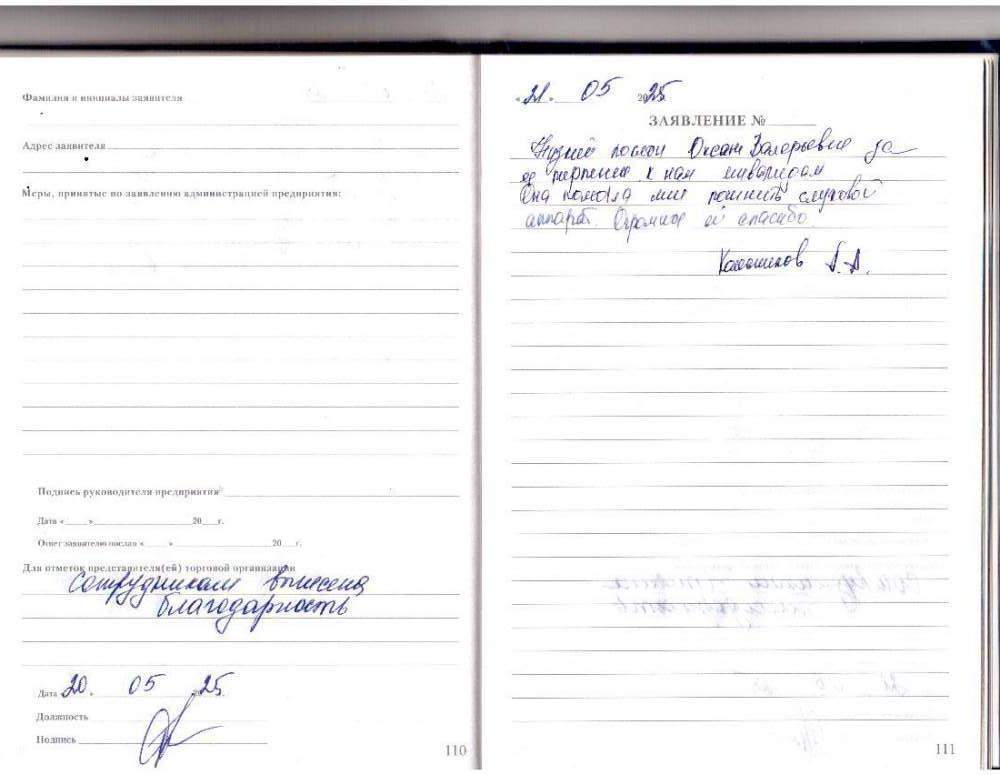 Фамилия и инициалы заявителя
Адрес заявителя
Меры, принятые по заявлению администрацией предприятия:
Подпись руководителя предприятия
Дата «    »    20    г.
Ответ заявителю послан «    »    20    г.
Для отметок представителя(ей) торговой организации
Сотрудникам вынесена
благодарность
Дата 20. 05 2025.
Должность
Подпись
110
«21. 05 2025
ЗАЯВЛЕНИЕ №
Низкий поклон Оксане Валерьевне за
ее терпение к нам инвалидам
Она помогла мне починить слуховой
аппарат. Огромное ей спасибо.
А.А.
111